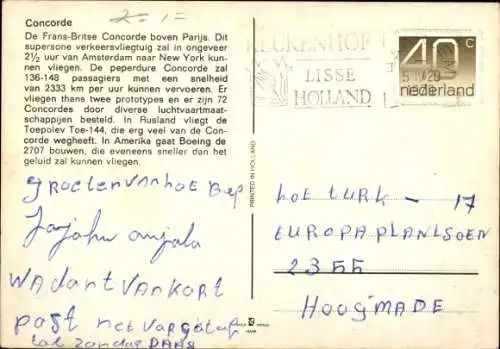 2=1=
Concorde
De Frans-Britse Concorde boven Parijs. Dit
supersone verkeersvliegtuig zal in ongeveer
2½ uur van Amsterdam naar New York kun-
nen vliegen. De peperdure Concorde zal
136-148 passagiers met een snelheid
van 2333 km per uur kunnen vervoeren. Er
vliegen thans twee prototypes en er zijn 72
Concordes door diverse luchtvaartmaat-
schappijen besteld. In Rusland vliegt de
Toepolev Toe-144, die erg veel van de Con-
corde wegheeft. In Amerika gaat Boeing de
2707 bouwen, die eveneens sneller dan het
geluid zal kunnen vliegen.
groeten van hoe Bep
Jajohn anjala
wadant van kort
post net
tal zondag
PRINTED IN HOLLAND
KEUKENHOF
LISSE
HOLLAND
40 c
nederland
hoe TURK - 17
EUROPAPLANTSOEN
2355
HOOGMADE